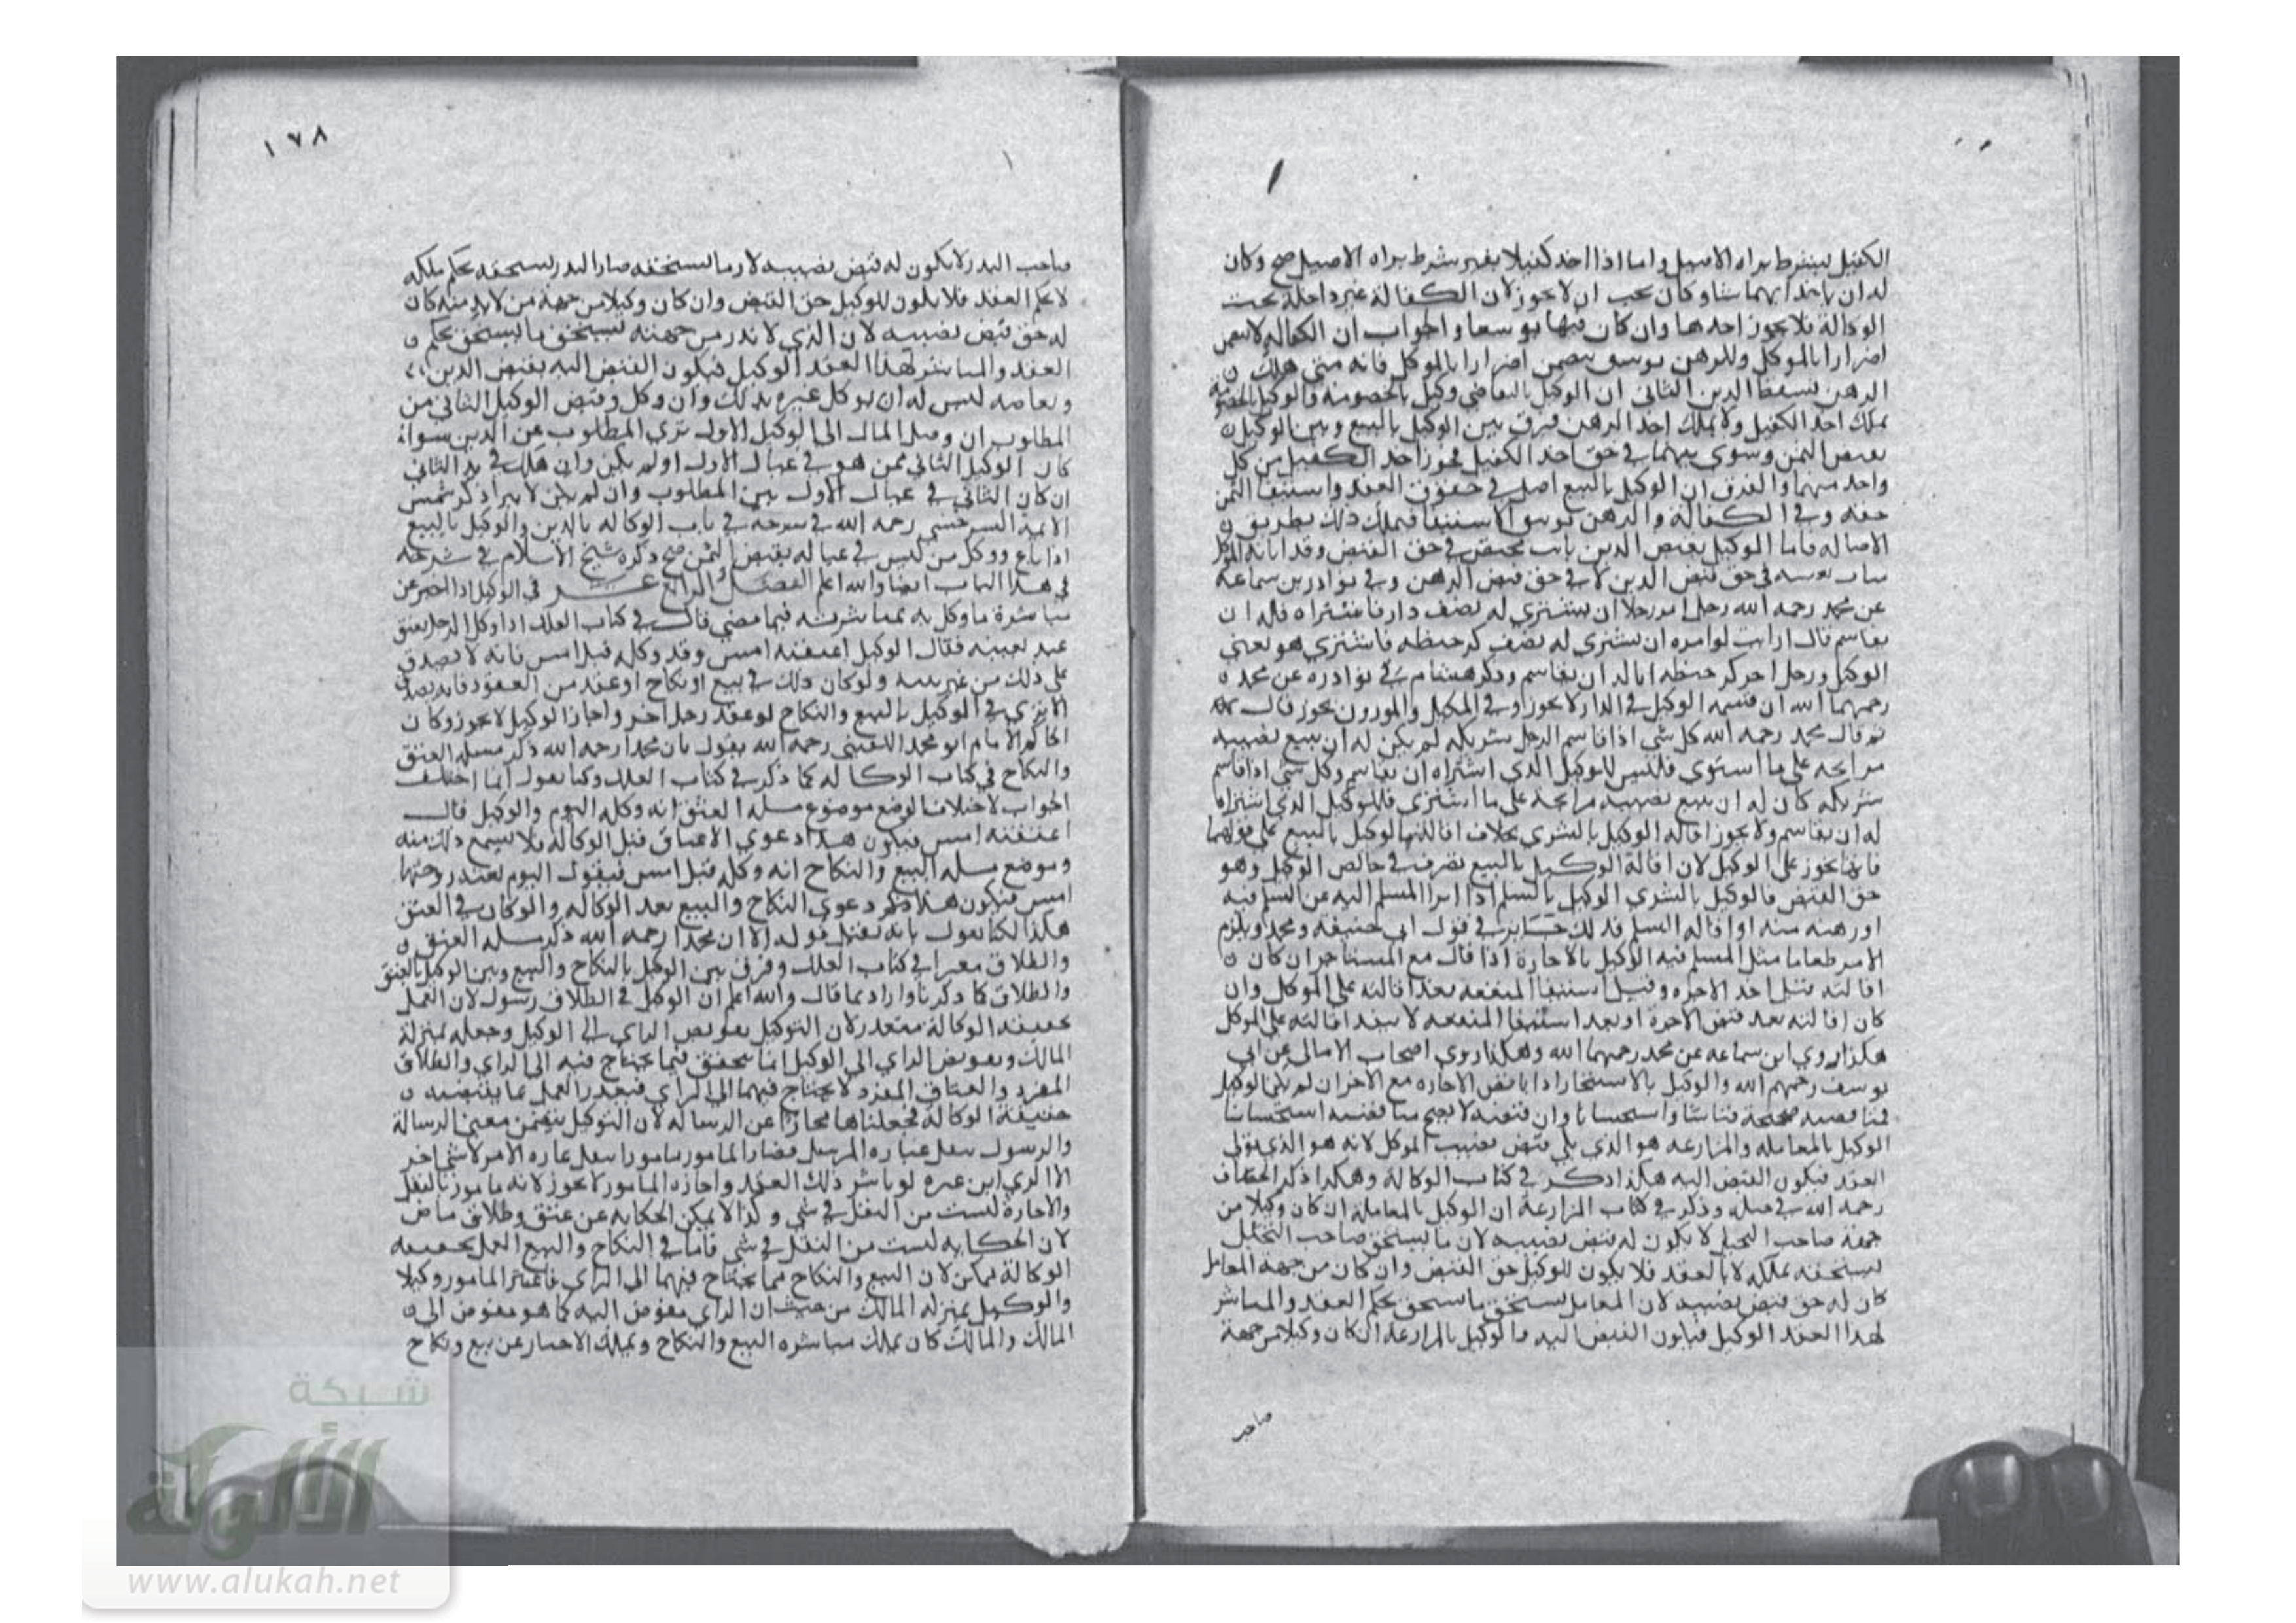 الكفيل بشرط براه الاصيل واما اذا اخذ كفيلا بغير شرط براه الاصيل صح وكان
له ان ياخذ ايهما شا وكان يجب ان لا يجوز لان الكفالة غير داخلة تحت
الوكالة فلا يجوز اخذها وان كان فيها توسعا والجواب ان الكفالة لا تتضمن
اضرارا بالموكل وللرهن توسع يتضمن اضرارا بالموكل فانه متى هلك
الرهن يسقط الدين الثاني ان الوكيل بالتقاضي وكيل بالخصومة والوكيل بالخصومة
يملك اخذ الكفيل ولا يملك اخذ الرهن فرق بين الوكيل بالبيع وبين الوكيل
بقبض الثمن وسوى بينهما في حق اخذ الكفيل فجوز اخذ الكفيل من كل
واحد منهما والفرق ان الوكيل بالبيع اصل في حقوق العقد واستيفا الثمن
حقه وفي الكفالة والرهن توسق الاستيفا فيملك ذلك بطريق
الاصاله فاما الوكيل بقبض الدين نايب محض في حق القبض وقد انابه الموكل
مناب نفسه في حق قبض الدين لا في حق قبض الرهن وفي نوادر بن سماعة
عن محمد رحمه الله رجل امر رجلا ان يشتري له نصف دار فاشتراه فله ان
يقاسم قال ارايت لو امره ان يشتري له نصف كر حنطه فاشتري هو يعني
الوكيل ورجل اخر كر حنطه اما له ان يقاسم وذكر هشام في نوادره عن محمد
رحمهما الله ان قسمه الوكيل في الدار لا يجوز وفي المكيل والموزون يجوز قال
ثم قال محمد رحمه الله كل شي اذا قاسم الرجل شريكه لم يكن له ان يبيع نصيبه
مرابحه على ما اشتري فليس للوكيل الذي اشتراه ان يقاسم وكل شي اذا قاسم
شريكه كان له ان يبيع نصيبه مرابحة على ما اشتري فللوكيل الذي اشتراه
له ان يقاسم ولا يجوز اقاله الوكيل بالشري بخلاف اقاله الوكيل بالبيع على قولهما
فانها تجوز على الوكيل لان اقالة الوكيل بالبيع تصرف في خالص الوكيل وهو
حق القبض فالوكيل بالشري الوكيل بالسلم اذا ابرا المسلم اليه عن السلم فيه
او رهنه منه او اقاله السلم فذلك جايز في قول ابي حنيفه ومحمد ويلزم
الامر طعاما مثل المسلم فيه الوكيل بالاجارة اذا قال مع المستاجر ان كان
اقالته قبل اخذ الاجره وقبل استيفا المنفعه بعد اقالته على الموكل وان
كان اقالته بعد قبض الاجرة او بعد استيفا المنفعه لا ينفد اقالته على الموكل
هكذا روي ابن سماعه عن محمد رحمهما الله وهكذا روي اصحاب الامالي عن ابي
يوسف رحمهم الله والوكيل بالاستيجار اذا ناقض الاجاره مع الاخر ان لم يكن الوكيل
قبضه صحيحة قياسا واستحسانا وان قبضه لا يصح مناقضته استحسانا
الوكيل بالمعامله والمزارعه هو الذي يلي قبض نصيب الموكل لانه هو الذي تولى
العقد فيكون القبض اليه هكذا ذكر في كتاب الوكالة وهكذا ذكر الخصاف
رحمه الله في حيله وذكر في كتاب المزارعة ان الوكيل بالمعاملة ان كان وكيلا من
جهة صاحب النخيل لا يكون له قبض نصيبه لان ما يستحق صاحب النخيل
يستحقه بملكه لا بالعقد فلا يكون للوكيل حق القبض وان كان من جهة المعامل
كان له حق قبض نصيبه لان المعامل يستحق ما يستحق بحكم العقد والمباشر
لهذا العقد الوكيل فيكون القبض اليه والوكيل بالمزارعة ان كان وكيلا من جهة
صاحب
١٧٨
صاحب البذر لا يكون له قبض نصيبه لان ما يستحقه صاحب البذر يستحقه بحكم ملكه
لا بحكم العقد فلا يكون للوكيل حق القبض وان كان وكيلا من جهة من لا بذر منه كان
له حق قبض نصيبه لان الذي لا بذر من جهته يستحق ما يستحق بحكم
العقد والمباشر لهذا العقد الوكيل فيكون القبض اليه بقبض الدين
وتقاضيه ليس له ان يوكل غيره بذلك وان وكل وقبض الوكيل الثاني من
المطلوب ان وصل المال الى الوكيل الاول بري المطلوب عن الدين سواء
كان الوكيل الثاني ممن هو في عيال الاول او لم يكن وان هلك في يد الثاني
ان كان الثاني في عيال الاول بري المطلوب وان لم يكن لا يبرا ذكر شمس
الايمة السرخسي رحمه الله في شرحه في باب الوكاله بالدين والوكيل بالبيع
اذا باع ووكل من ليس في عياله بقبض الثمن صح ذكره شيخ الاسلام في شرحه
في هذا الباب ايضا والله اعلم الفصل الرابع عشر في الوكيل اذا اخبر عن
مباشرة ما وكل به عما باشرته فيما مضي قال في كتاب العلل اذا وكل الرجل بعتق
عبد بعينه فقال الوكيل اعتقته امس وقد وكله قبل امس فانه لا يصدق
على ذلك من غير بينه ولو كان ذلك في بيع او نكاح او عقد من العقود فانه يصدق
الا يري في الوكيل بالبيع والنكاح لو عقد رجل اخر واجاز الوكيل لا يجوز وكان
الحاكم الامام ابو محمد رحمه الله يقول بان محمدا رحمه الله ذكر مسله العتق
والنكاح في كتاب الوكاله كما ذكر في كتاب العلل وكنا نقول انما اختلف
الجواب لاختلاف الوضع موضوع مسله العتق انه وكله اليوم والوكيل قال
اعتقته امس فيكون هذا دعوي الاعتاق قبل الوكاله فلا يسمع ذلك منه
وموضع مسله البيع والنكاح انه وكله قبل امس فيقول اليوم
امس فيكون هذا دعوي النكاح والبيع بعد الوكاله والوكان في العتق
هكذا لكنا نقول بانه يقبل قوله الا ان محمدا رحمه الله ذكر مسله العتق
والطلاق مفسرا في كتاب العلل وفرق بين الوكيل بالنكاح والبيع وبين الوكيل بالعتق
والطلاق كما ذكرنا واراد بما قال والله اعلم ان الوكيل في الطلاق رسول لان العمل
بحقيقه الوكالة متعذر لان التوكيل تفويض الراي الى الوكيل وجعله بمنزلة
المالك وتفويض الراي الى الوكيل انما يتحقق فيما يحتاج فيه الى الراي والطلاق
المفرد والعتاق المفرد لا يحتاج فيهما الى الراي فتعذر العمل بما يقتضيه
حقيقة الوكالة فجعلناها مجازا عن الرساله لان التوكيل يتضمن معنى الرسالة
والرسول ينقل عبارة المرسل فصار المامور مامورا بنقل عبارة الامر لا شي اخر
الا تري ان غيره لو باشر ذلك العقد واجازه المامور لا يجوز لانه مامور بالنقل
والاجازة ليست من النقل في شي وكذا لا يمكن الحكايه عن عتق وطلاق ماض
لان الحكايه ليست من النقل في شي فاما في النكاح والبيع العمل بحقيقه
الوكالة ممكن لان البيع والنكاح مما يحتاج فيهما الى الراي فاعتبر المامور وكيلا
والوكيل بمنزله المالك من حيث ان الراي مفوض اليه كما هو مفوض الى
المالك والمالك كان يملك مباشره البيع والنكاح ويملك الاخبار عن بيع ونكاح
شبكة
الألوكة
www.alukah.net